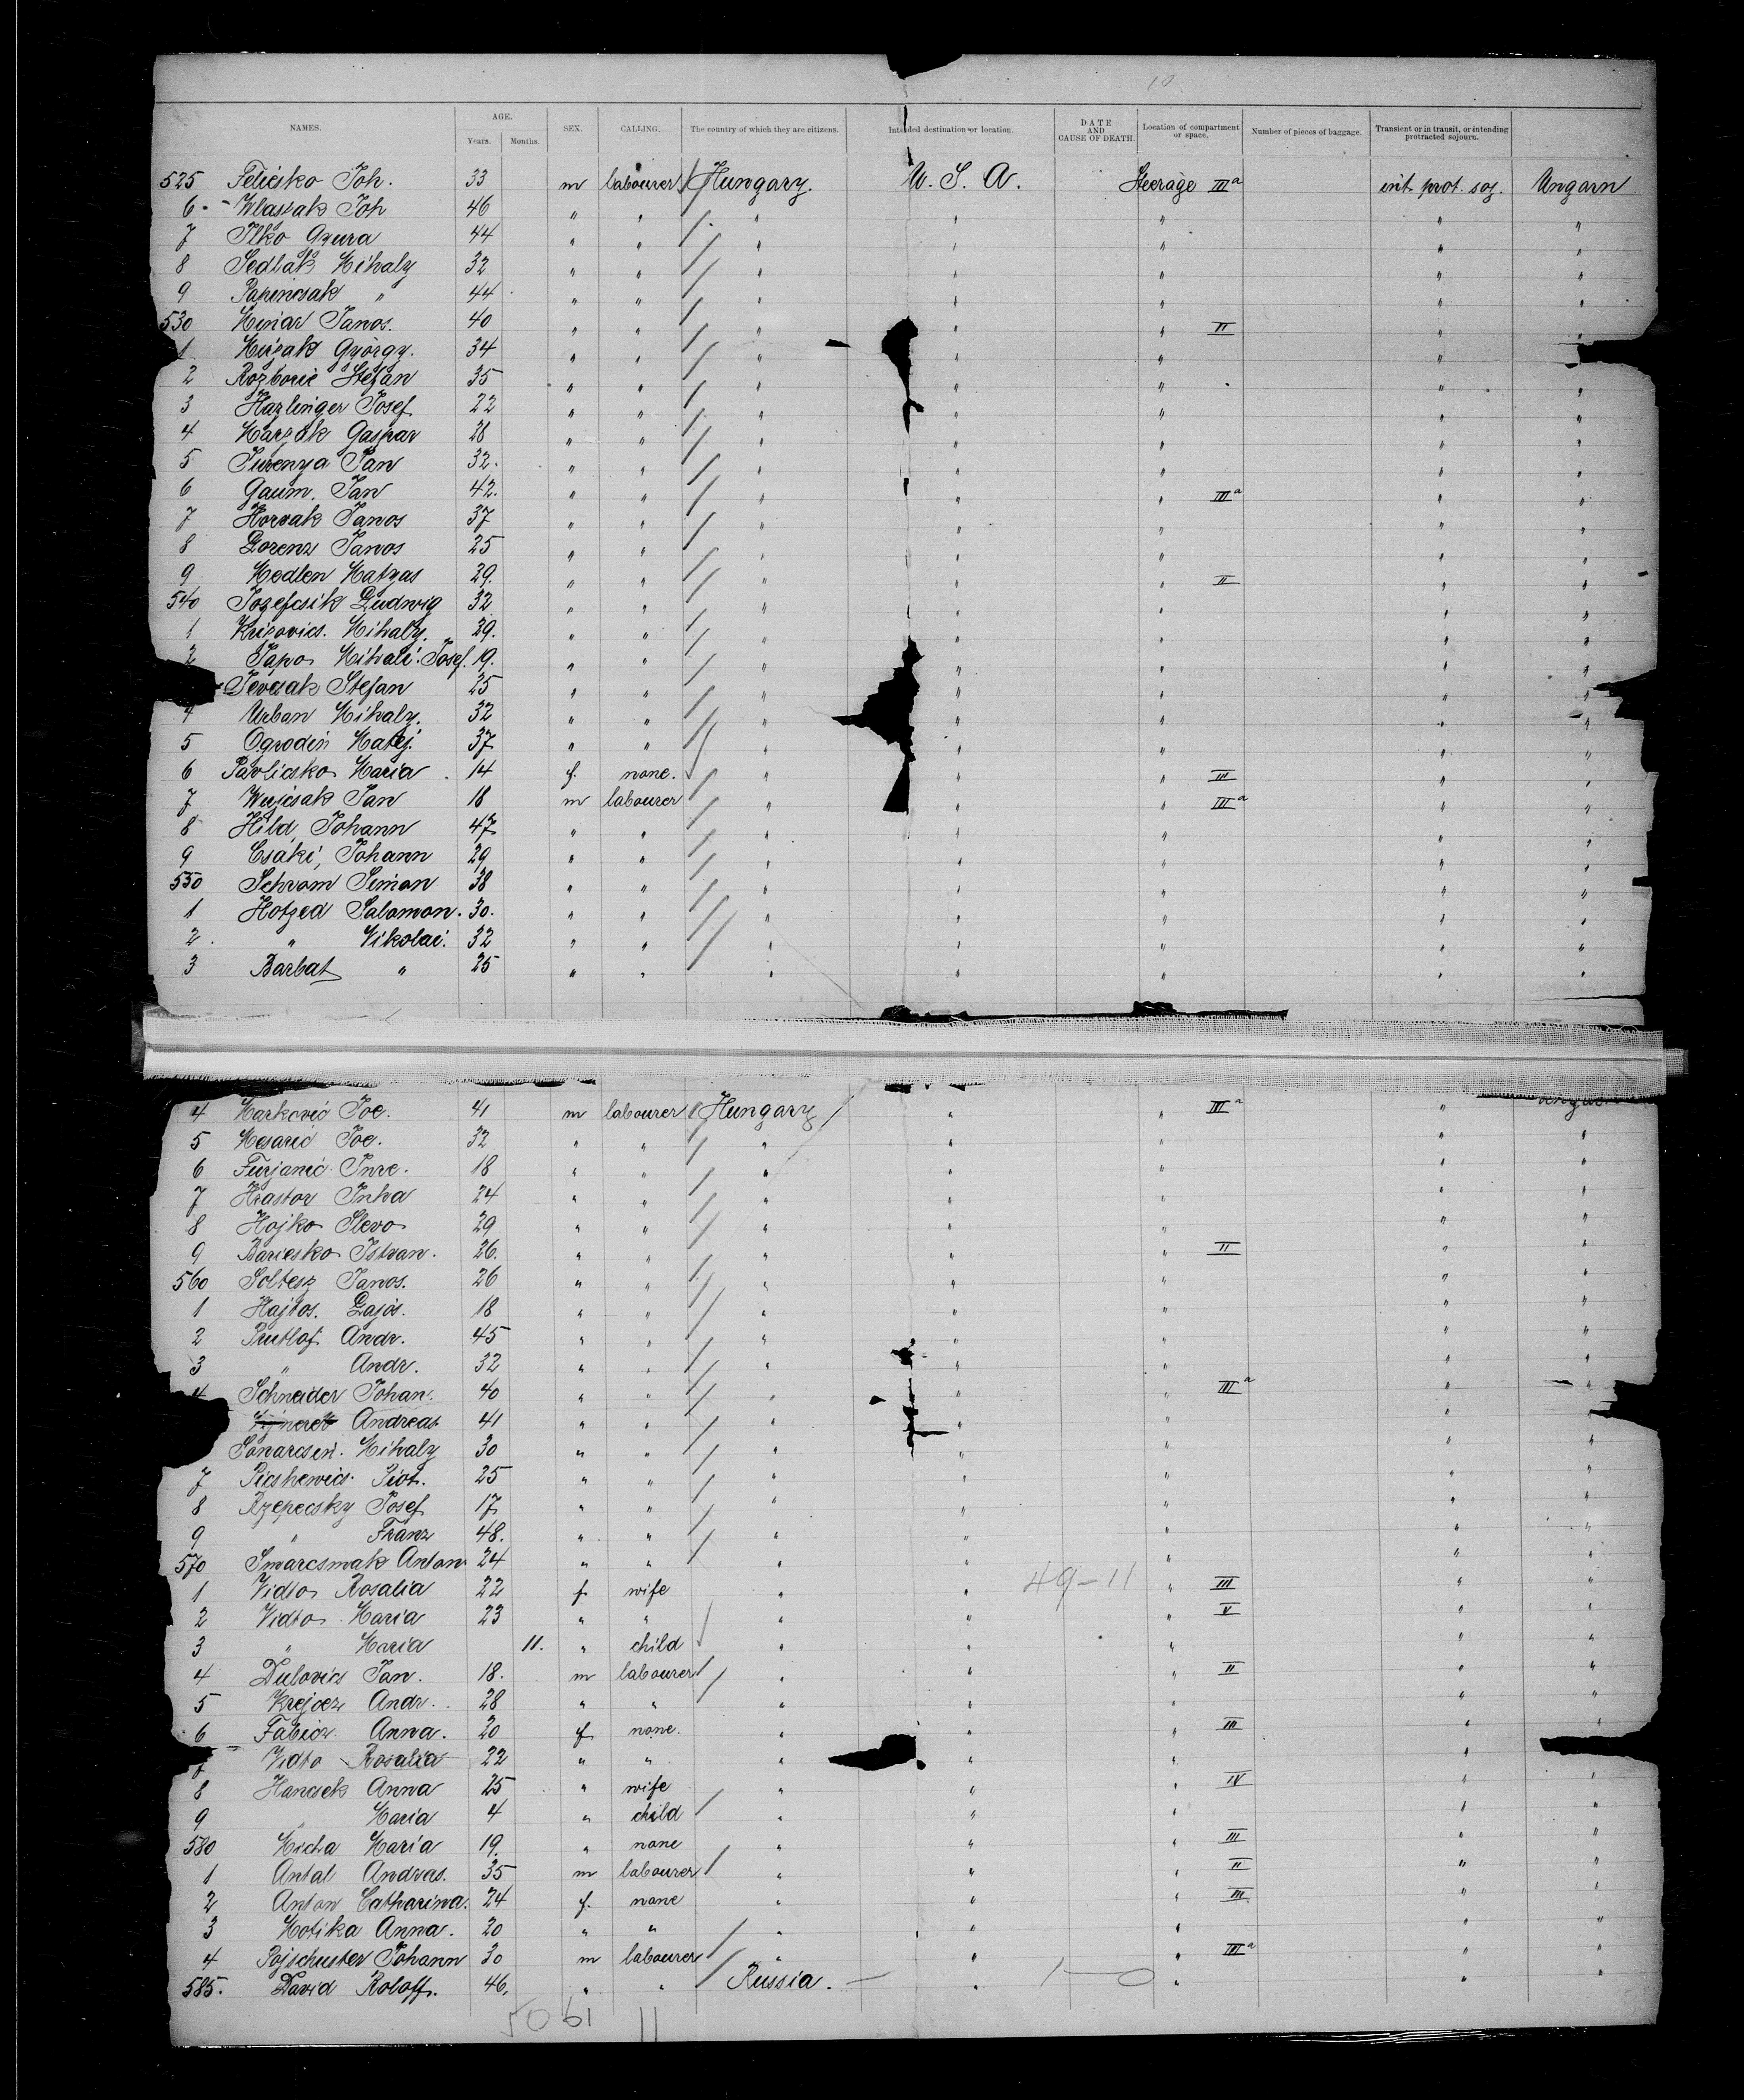 10
NAMES. AGE. Years. Months. SEX. CALLING. The country of which they are citizens. Intended destination or location. DATE AND CAUSE OF DEATH. Location of compartment or space. Number of pieces of baggage. Transient or in transit, or intending protracted sojourn.
525 Felicsko Joh. 33 m labourer Hungary. U. S. A. Steerage IIIa int. prot. soj. Ungarn
6 Wlassak Joh 46 " " " " " " "
7 Ilko Gyura 44 " " " " " " "
8 Sedlak Mihaly 32 " " " " " " "
9 Papencsak " 44 " " " " " " "
530 Minar Janos. 40 " " " " " II " "
1 Hirzak György. 34 " " " " " " "
2 Rozboric Stefan 35 " " " " " " "
3 Hazlinger Josef 22 " " " " " " "
4 Harzak Gaspar 28 " " " " " " "
5 Surenya Jan 32. " " " " " " "
6 Gaum. Jan 42. " " " " " IIIa " "
7 Horvak Janos 37 " " " " " " "
8 Lorenz Janos 25 " " " " " " "
9 Medlen Matyas 29. " " " " " II " "
540 Jozefcsik Ludwig 32 " " " " " " "
1 Krizovics. Mihaly. 29. " " " " " " "
2 Papo Mihali. Josef. 19. " " " " " " "
Sevcsak Stefan 25 " " " " " " "
4 Urban Mihaly. 32 " " " " " " "
5 Ogrodin Matej. 37 " " " " " " "
6 Pavlicsko Maria 14 f. none. " " " III " "
7 Wujcsak Jan 18 m labourer " " " IIIa " "
8 Hild, Johann 47 " " " " " " "
9 Csáki, Johann 29 " " " " " " "
550 Schram Simon 38 " " " " " " "
1 Hotzed Salamon. 30. " " " " " " "
2. " Nikolai. 32 " " " " " " "
3 Barbat " 25 " " " " " " "
4 Marković Joe. 41 m labourer Hungary " " IIIa "
5 Mesarić Joe. 32 " " " " " " "
6 Furjanić Imre. 18 " " " " " " "
7 Hrastor Inka 24 " " " " " " "
8 Hojko Stevo 29 " " " " " " "
9 Baricsko Istvan. 26. " " " " " II " "
560 Soltesz Janos. 26 " " " " " " "
1 Hajtos. Lajos. 18 " " " " " " "
2 Prutlof Andr. 45 " " " " " " "
3 " Andr. 32 " " " " " " "
4 Schneider Johan. 40 " " " " " IIIa " "
Andreas 41 " " " " " " "
Mihaly 30 " " " " " " "
7 Picshewics. Piot. 25 " " " " " " "
8 Rzepecsky Josef 17 " " " " " " "
9 " Franz 48. " " " " " " "
570 Smarcsmak Anton 24 " " " " " " "
1 Vidto Rosalia 22 f wife " " 49-11 " III " "
2 Vidto Maria 23 " " " " " V " "
3 " Maria 11. " child " " " " "
4 Dulovics Jan. 18. m labourer " " " II " "
5 Krejcez Andr. 28 " " " " " " "
6 Fabicz Anna. 20 f none. " " " III " "
7 Vidto Rosalia 22 " " " " " " "
8 Hancsek Anna 25 " wife " " " IV " "
9 " Maria 4 " child " " " " "
580 Micha Maria 19. " none " " " III " "
1 Antal Andras. 35 m labourer " " " II " "
2 Anton Catharina. 24 f. none " " " III " "
3 Motika Anna. 20 " " " " " " "
4 Pojschuster Johann 30 m labourer " " " IIIa " "
585. David Roloff. 46. " " Russia. — " 1—0 " " "
50 61 11